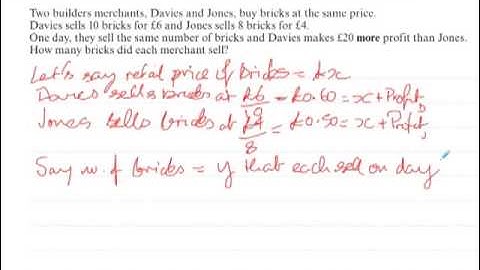 Two builders merchants, Davies and Jones, buy bricks at the same price.
Davies sells 10 bricks for £6 and Jones sells 8 bricks for £4.
One day, they sell the same number of bricks and Davies makes £20 more profit than Jones.
How many bricks did each merchant sell?
Let's say retal price of bricks = £x
Davies sells bricks at £6 = £0.60 = x + Profit D
Jones sells bricks at £4/8 = £0.50 = x + Profit J
Say no. of bricks = y that each sell on day